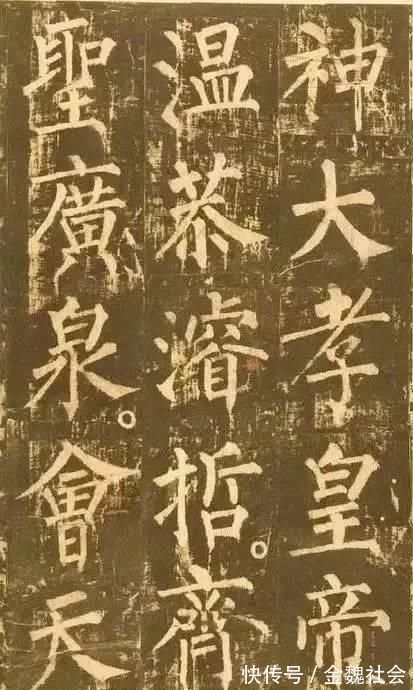 神大孝皇帝
温恭濬哲。齊
聖廣泉。會天
快传号/金魏社会